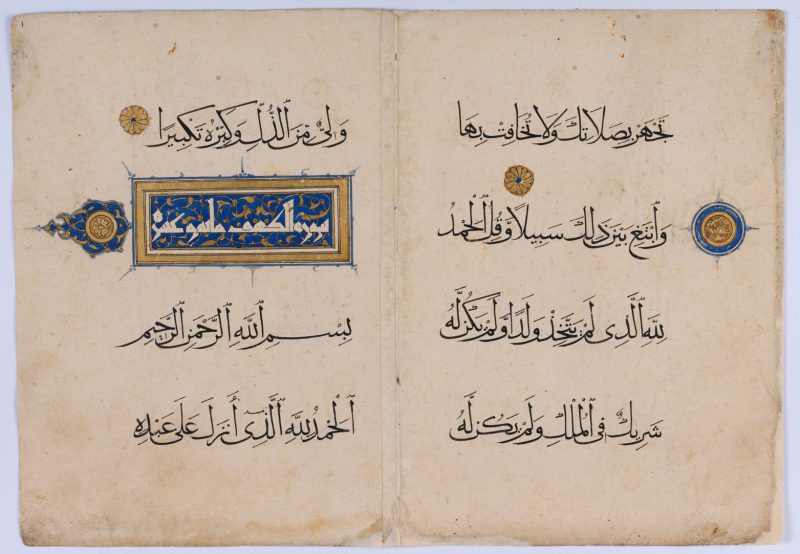 تَجْهَرْ بِصَلَاتِكَ وَلَا تُخَافِتْ بِهَا
وَٱبْتَغِ بَيْنَ ذَلِكَ سَبِيلًا وَقُلِ ٱلْحَمْدُ
لِلَّهِ ٱلَّذِى لَمْ يَتَّخِذْ وَلَدًا وَلَمْ يَكُنْ لَّهُ
شَرِيكٌ فِى ٱلْمُلْكِ وَلَمْ يَكُنْ لَّهُ
وَلِىٌّ مِنَ ٱلذُّلِّ وَكَبِّرْهُ تَكْبِيرًا
سورة الكهف
بِسْمِ ٱللَّهِ ٱلرَّحْمَنِ ٱلرَّحِيمِ
ٱلْحَمْدُ لِلَّهِ ٱلَّذِىٓ أَنْزَلَ عَلَى عَبْدِهِ